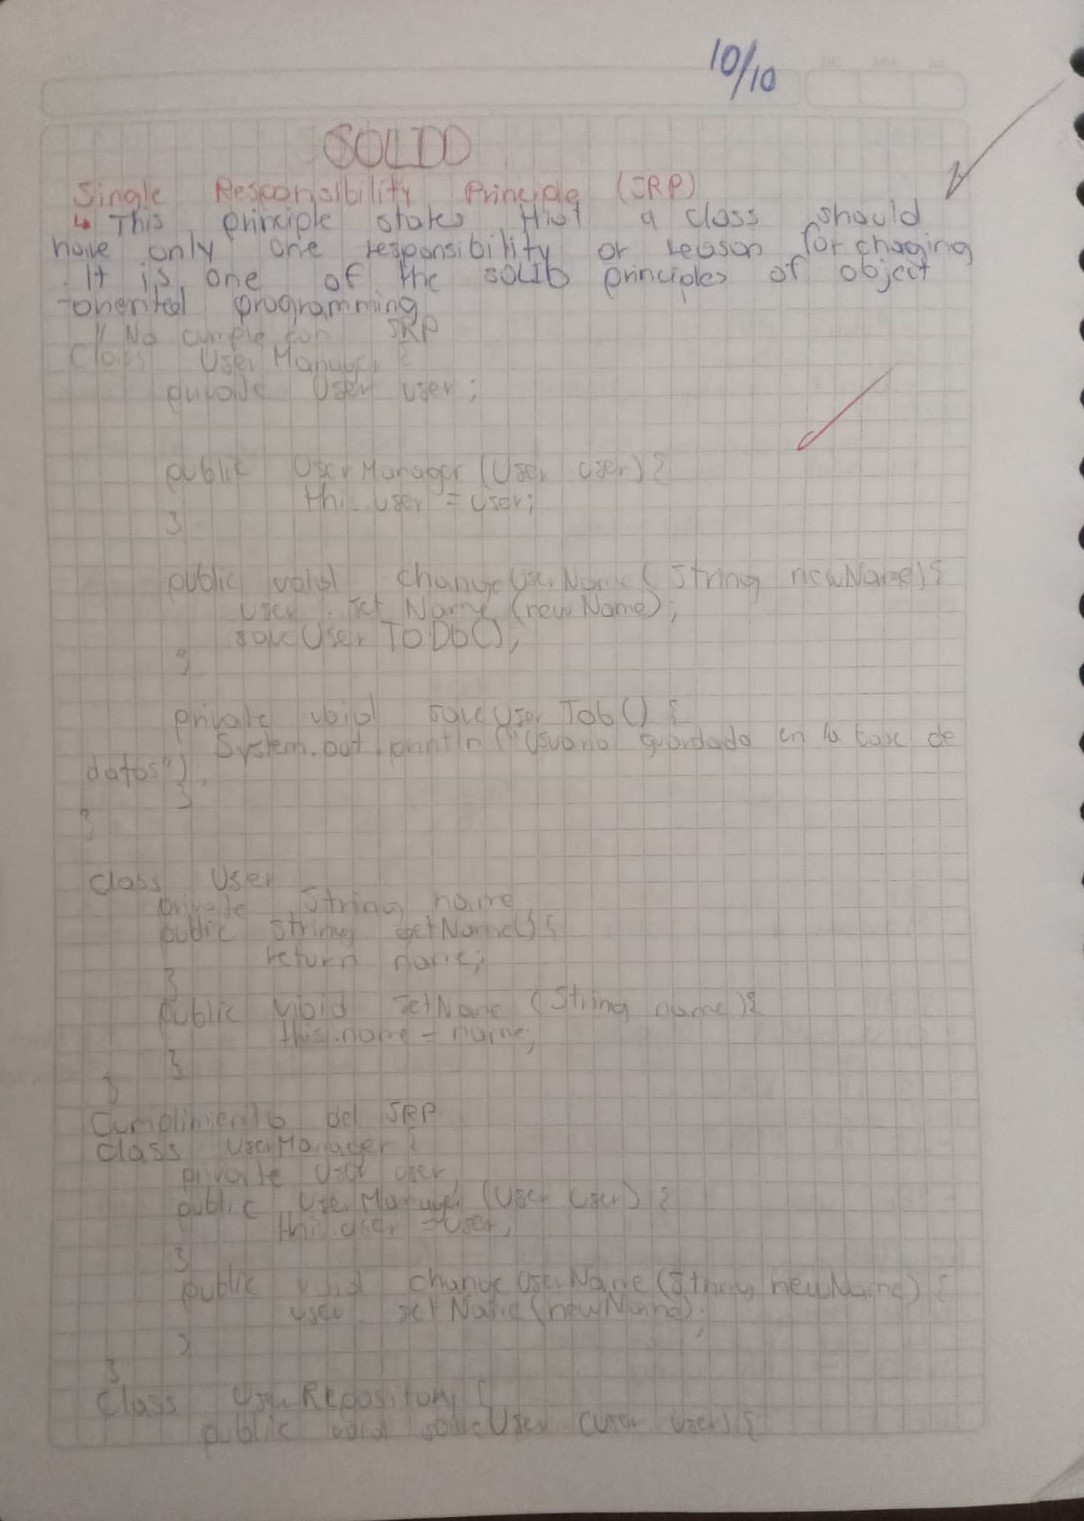 10/10
SOLID
Single Responsibility Principle (SRP)
↳ This principle states that a class should
have only one responsibility or reason for chaging
. It is one of the SOLID principles of object
-oriented programming
// No cumple con SRP
Class User Manager {
private User user;
public UserManager (User user) {
this.user = user;
}
public void changeUserName (String newName) {
user . set Name (newName);
saveUser To Db();
}
private void saveUser Tob () {
System.out.println ("Usuario guardado en la base de
datos").
}
}
class User
private String name
public String getName() {
return name;
}
public void setName (String name) {
this.name = name;
}
}
Cumplimiento del SRP
class UserManager {
private User user
public UserManager (User user) {
this user = user,
}
public void change UserName (String newName) {
user setName (newName);
}
}
Class UserRepository {
public void saveUser (user user) {